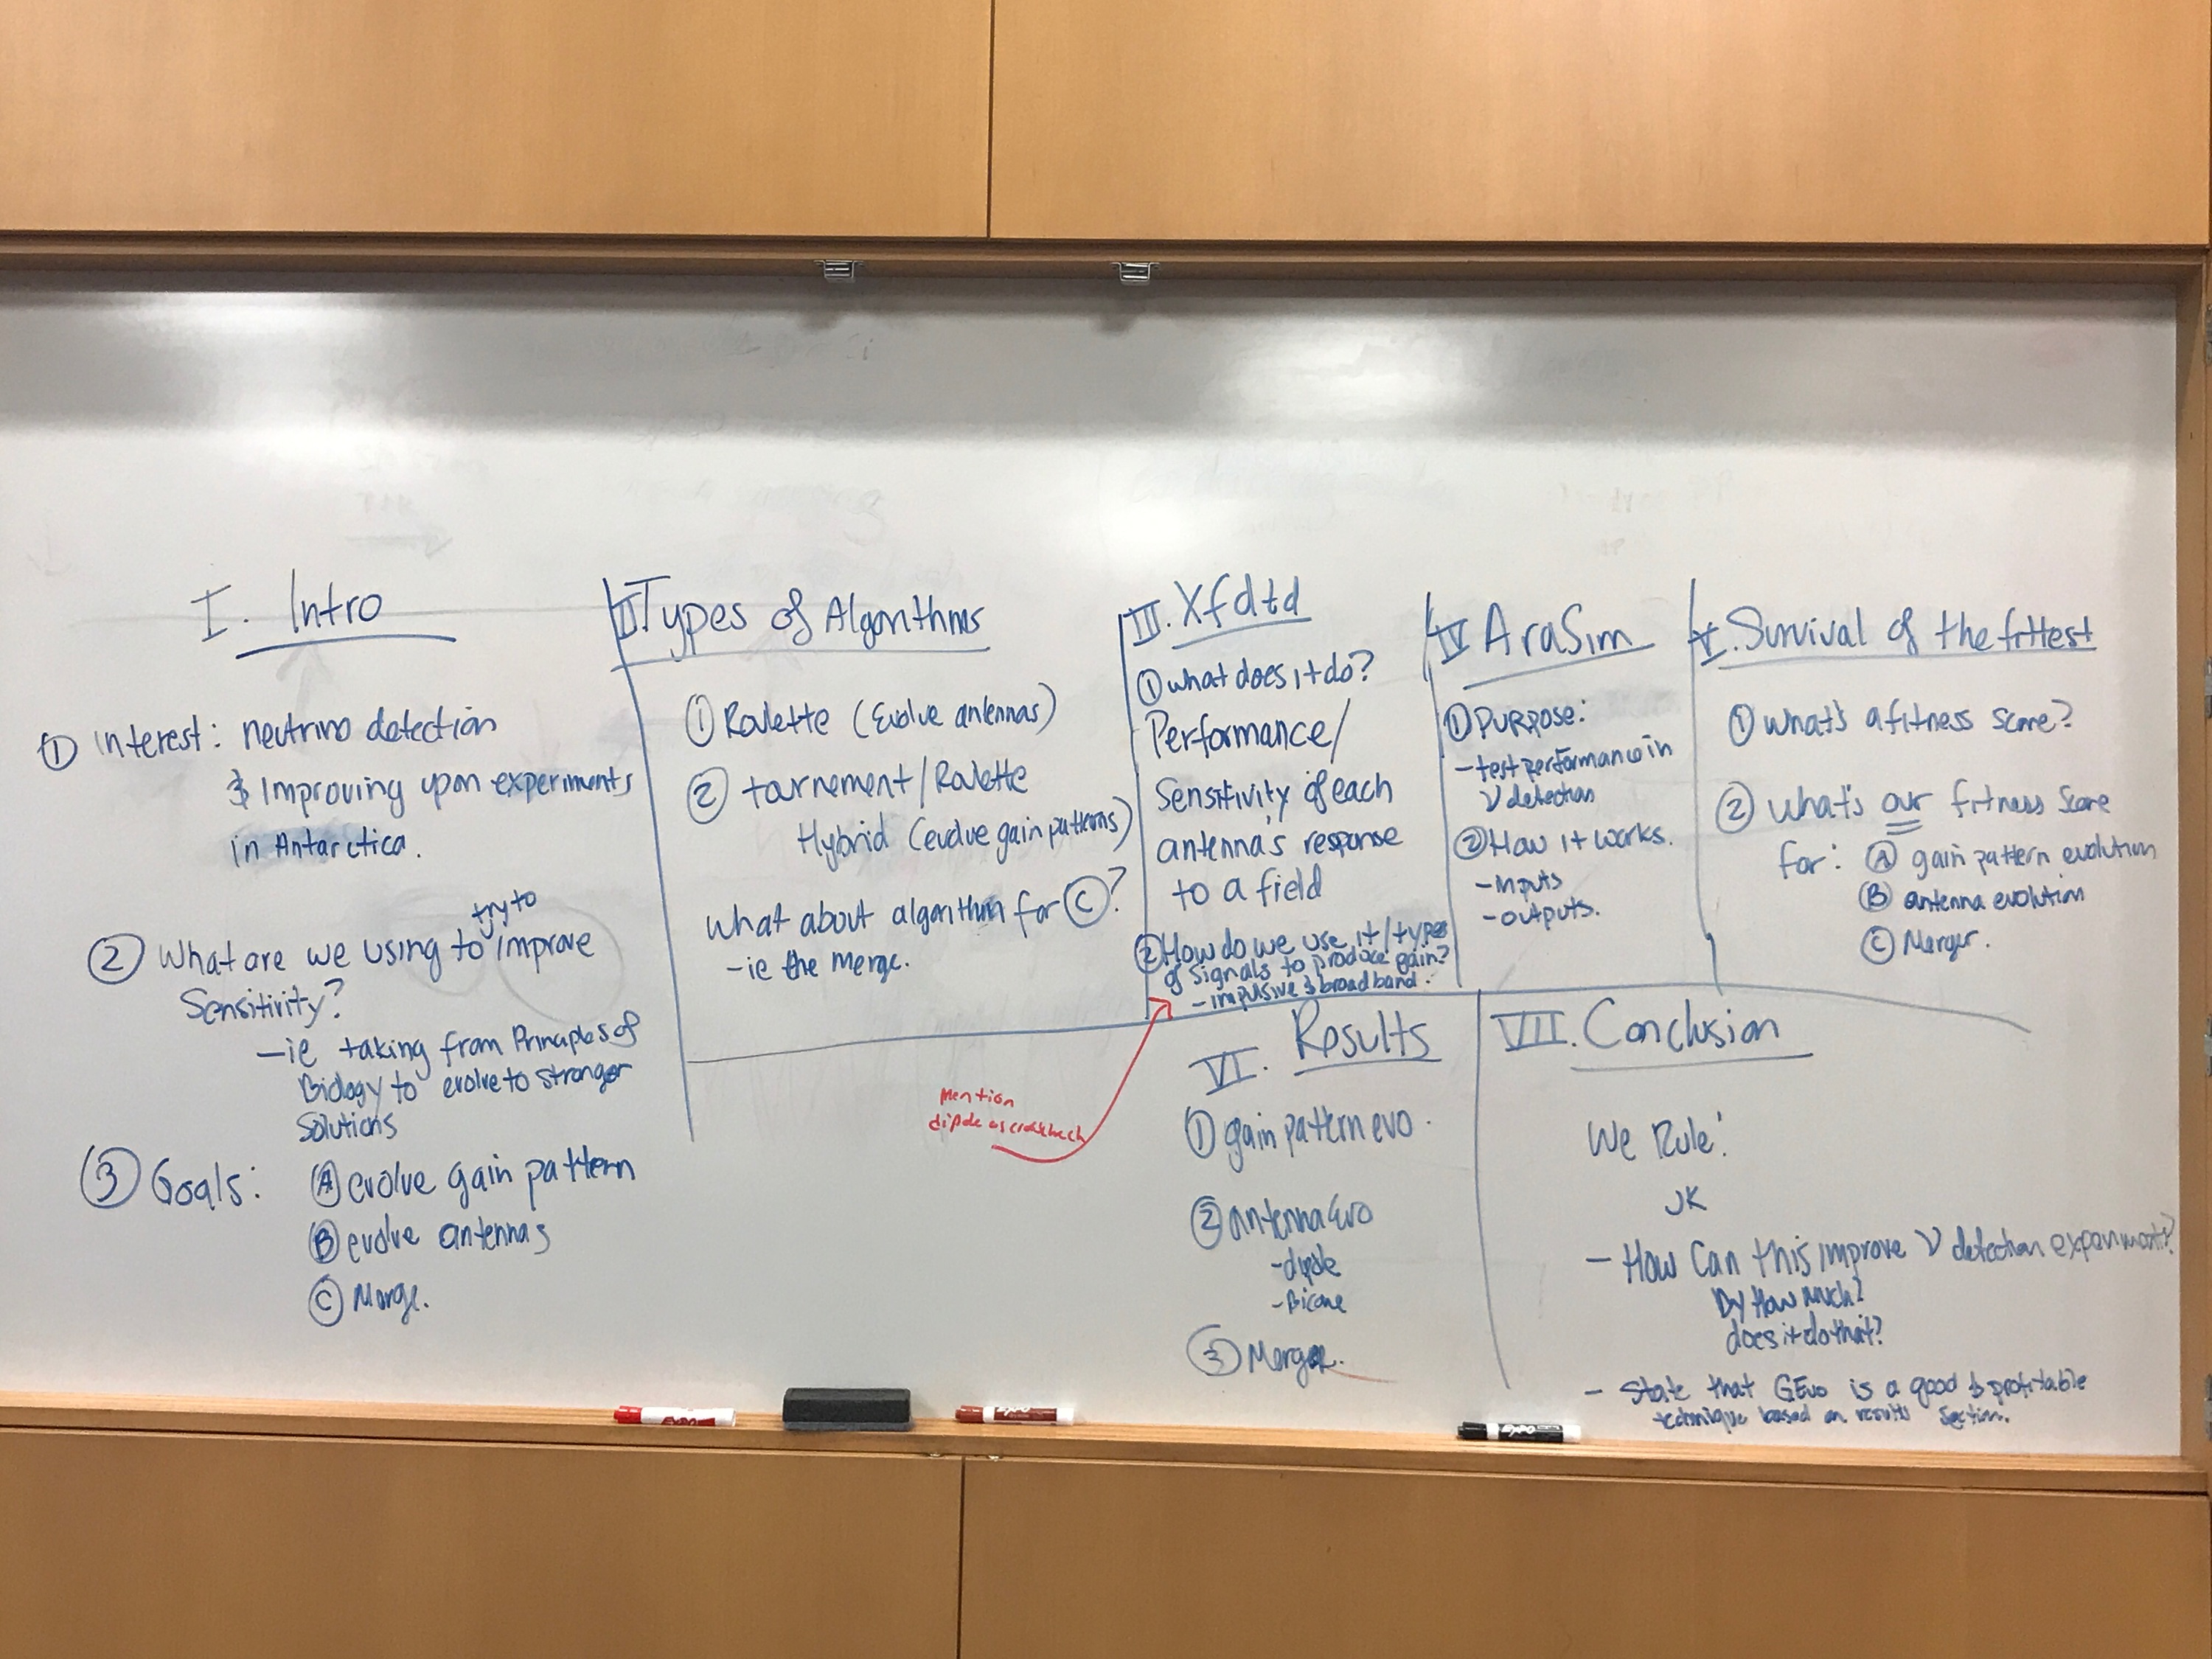 I. Intro
① Interest: neutrino detection
& Improving upon experiments
in Antarctica.
try to
② What are we using to improve
Sensitivity?
-ie taking from Principles of
Biology to evolve to stronger
Solutions
③ Goals: Ⓐ evolve gain pattern
Ⓑ evolve antennas
Ⓒ Merge.
II. Types of Algorithms
① Roulette (Evolve antennas)
② tournement/Roulette
Hybrid (evolve gain patterns)
What about algorithm for Ⓒ?
-ie the merge.
III. Xfdtd
① what does it do?
Performance/
Sensitivity of each
antenna's response
to a field
② How do we use it/types
of signals to produce gain?
- impulsive & broadband.
Mention
dipole as crosscheck
IV AraSim
① Purpose:
- test performance in
ν detection
② How it works.
- inputs
- outputs.
V. Survival of the fittest
① What's a fitness score?
② What's our fitness score
for: Ⓐ gain pattern evolution
Ⓑ antenna evolution
Ⓒ Merger.
VI. Results
① gain pattern evo.
② antenna Evo
- dipole
- Bicone
③ Merger.
VII. Conclusion
We Rule!
JK
- How Can this improve ν detection experiments?
By How Much?
does it do that?
- State that GEvo is a good & profitable
technique based on results section.
EXPO
EXPO
EXPO